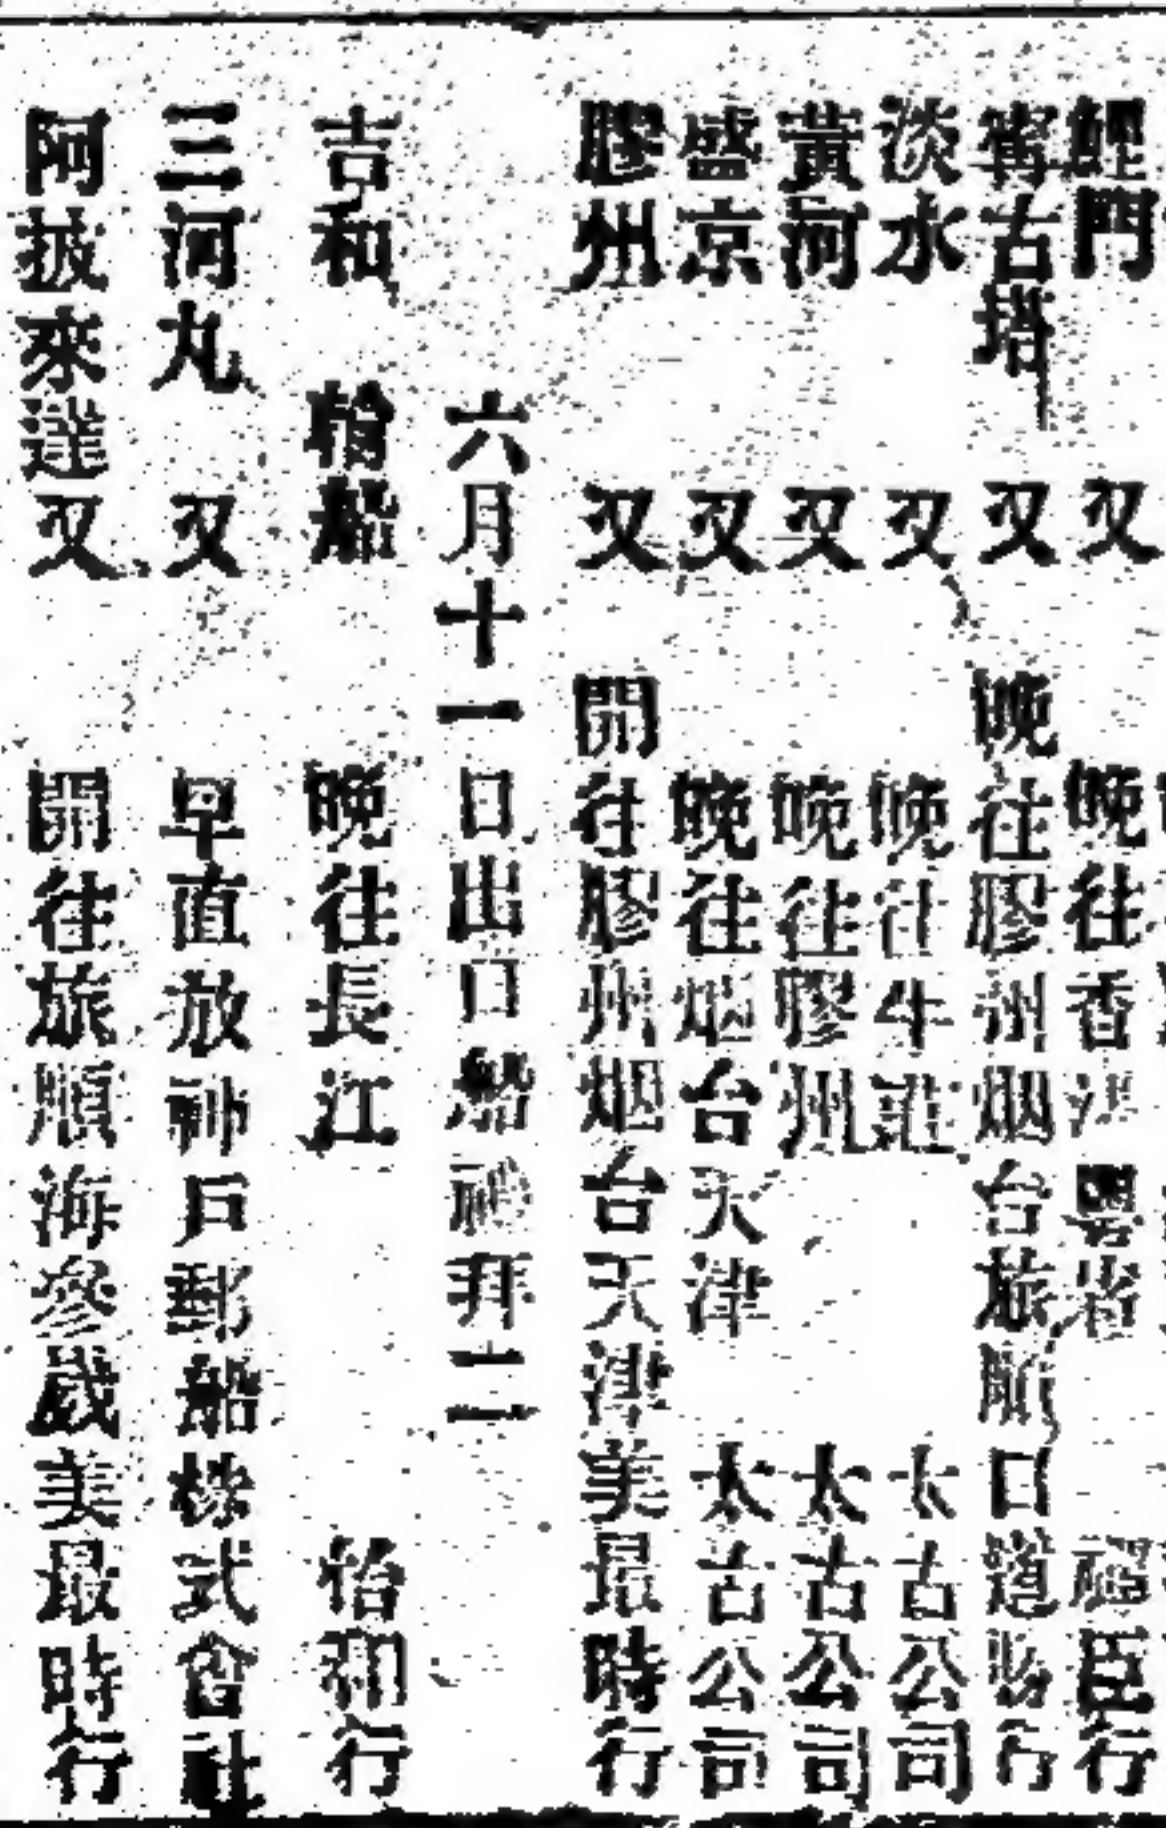 鯉門 又 晚往香港 粤省 禪臣行
寗古塔 又 晚往膠州烟台旅順口道勝行
淡水 又 晚往牛莊 太古公司
黃河 又 晚往膠州 太古公司
盛京 又 晚往烟台天津 太古公司
膠州 又 開往膠州烟台天津美最時行
六月十一日出口船禮拜二
吉和 輪船 晚往長江 怡和行
三河丸 又 早直放神戶郵船株式會社
阿拔來達又 開往旅順海參崴美最時行